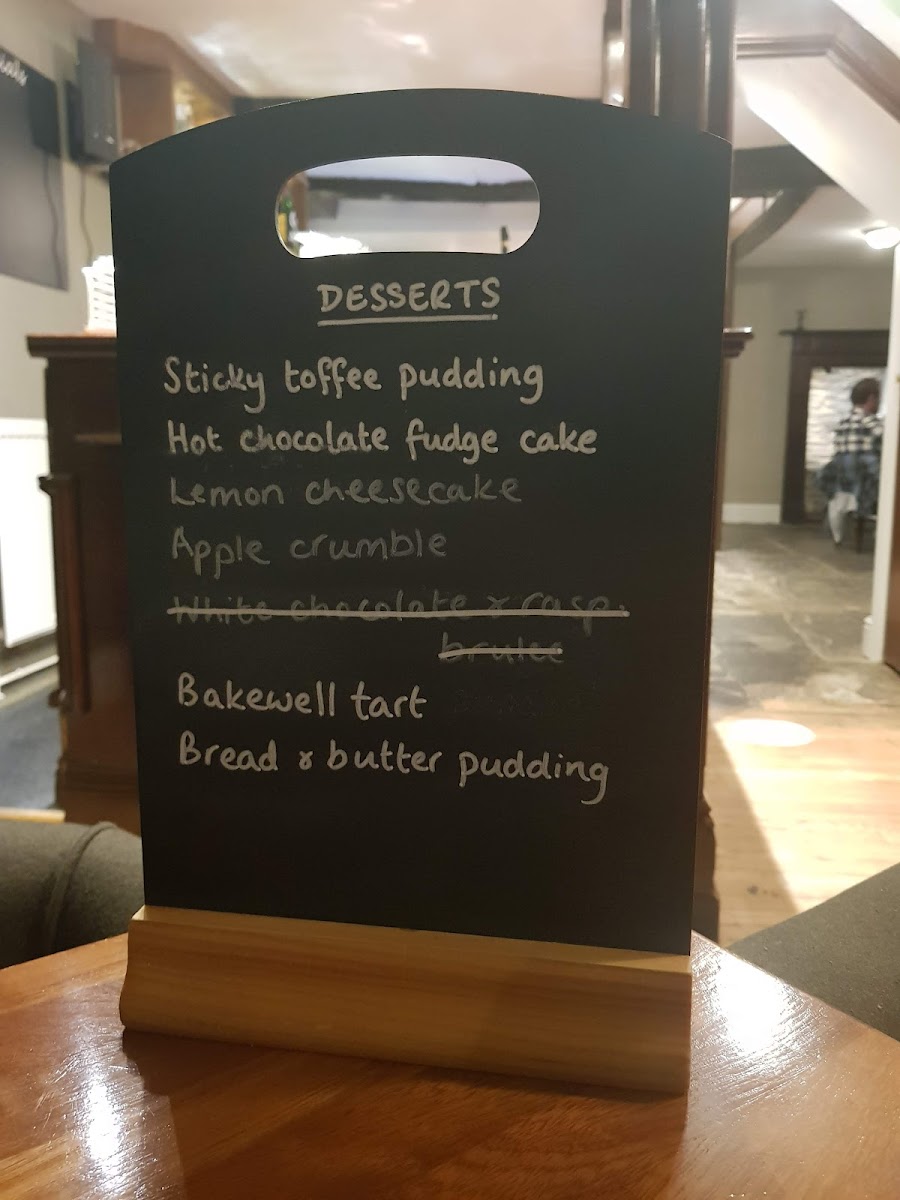 DESSERTS
Sticky toffee pudding
Hot chocolate fudge cake
Lemon cheesecake
Apple crumble
White chocolate & rasp.
brulee
Bakewell tart
Bread & butter pudding